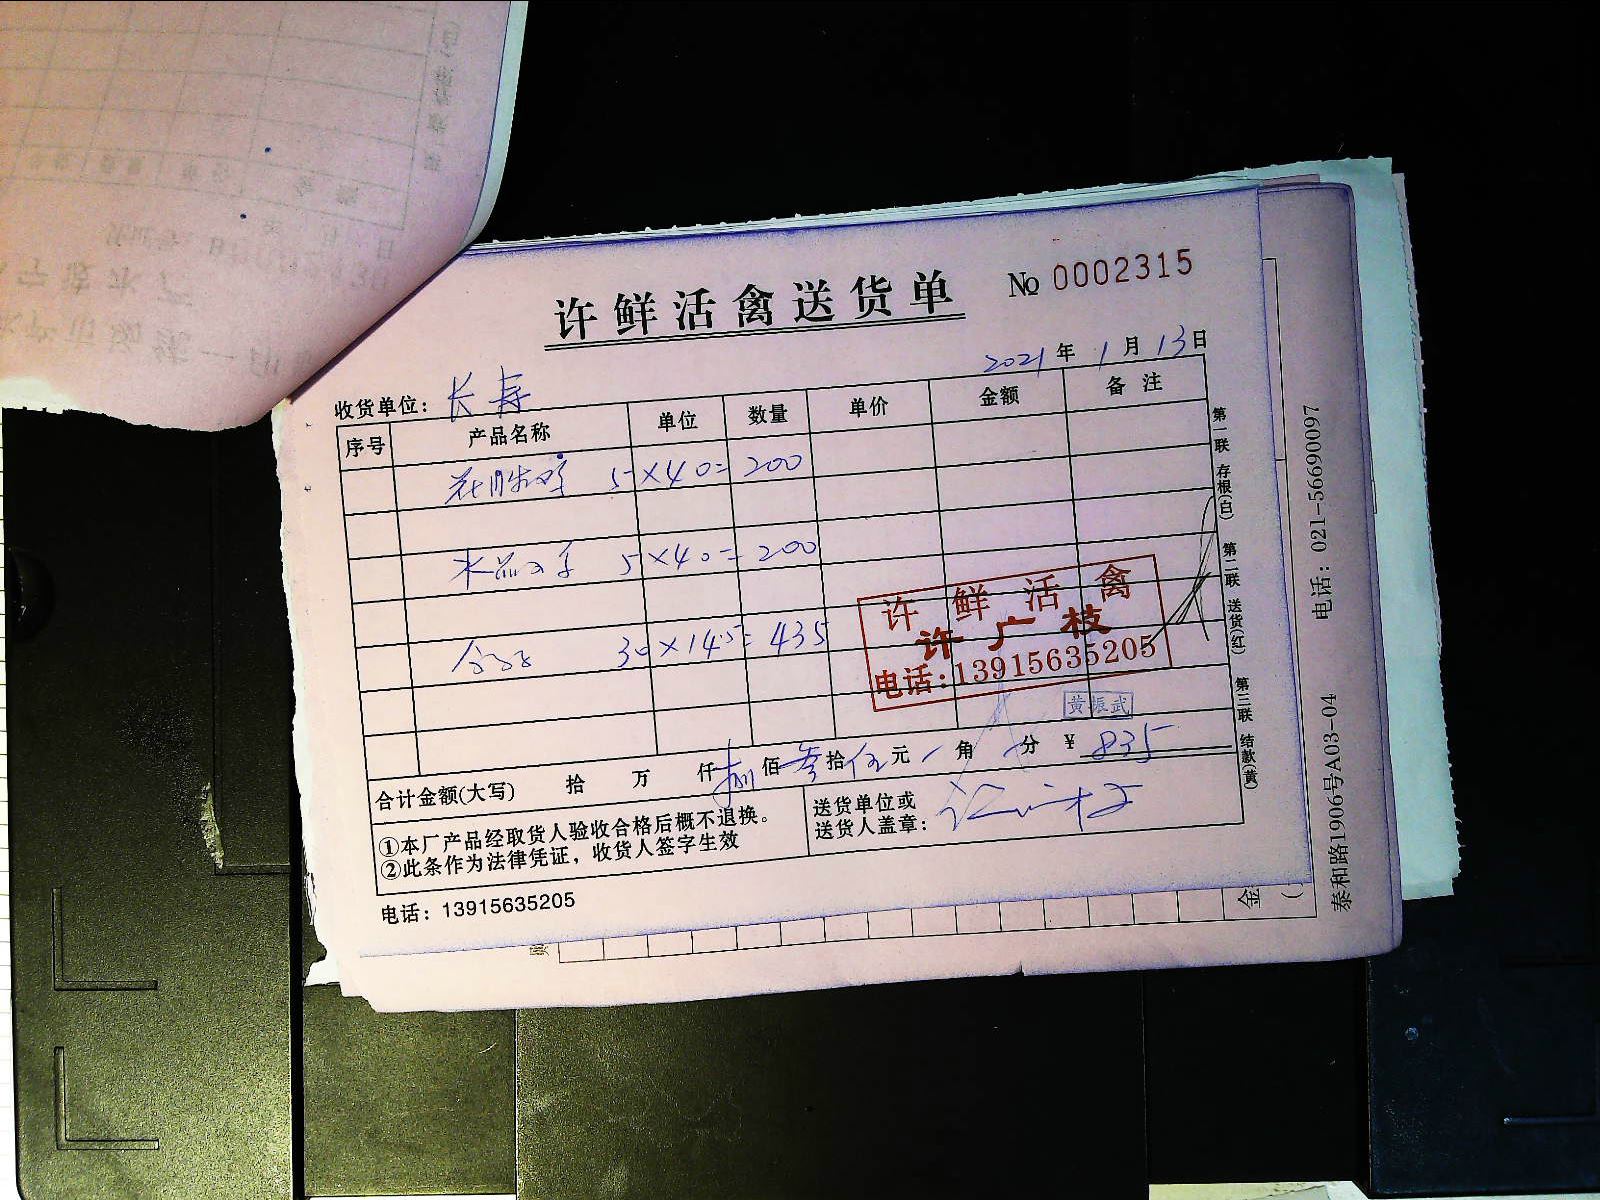 许鲜活禽送货单
No 0002315
2021年1月13日
收货单位：长寿
序号 产品名称 单位 数量 单价 金额 备注
5×40=200
5×40=200
30×14.5=435
许鲜活禽
许广枝
电话:13915635205
黄振武
合计金额(大写) 拾 万 仟 捌佰叁拾伍元 角 分 ¥ 835
①本厂产品经取货人验收合格后概不退换。
②此条作为法律凭证，收货人签字生效
送货单位或
送货人盖章：许广枝
电话：13915635205
第一联 存根(白) 第二联 送货(红) 第三联 结款(黄)
泰和路1906号A03-04 电话：021-56690097
金